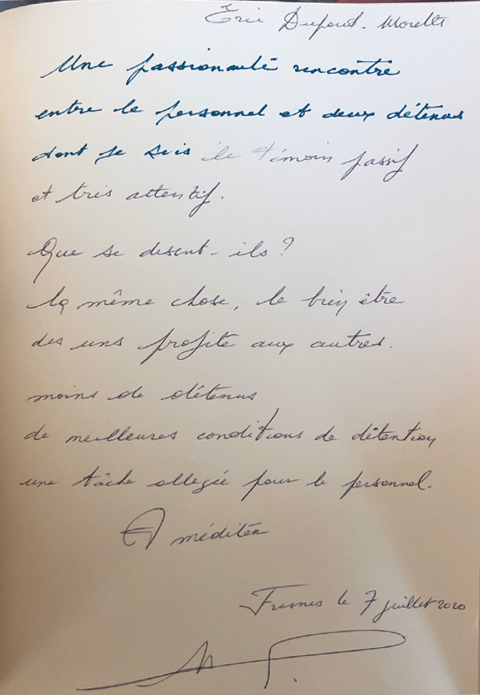 Eric Dupond-Moretti
Une passionnante rencontre
entre le personnel et deux détenus
dont je suis le témoin passif
et très attentif.
Que se disent-ils ?
la même chose, le bien être
des uns profite aux autres.
moins de détenus
de meilleures conditions de détention
une tâche allegée pour le personnel.
A méditer
Fresnes le 7 juillet 2020